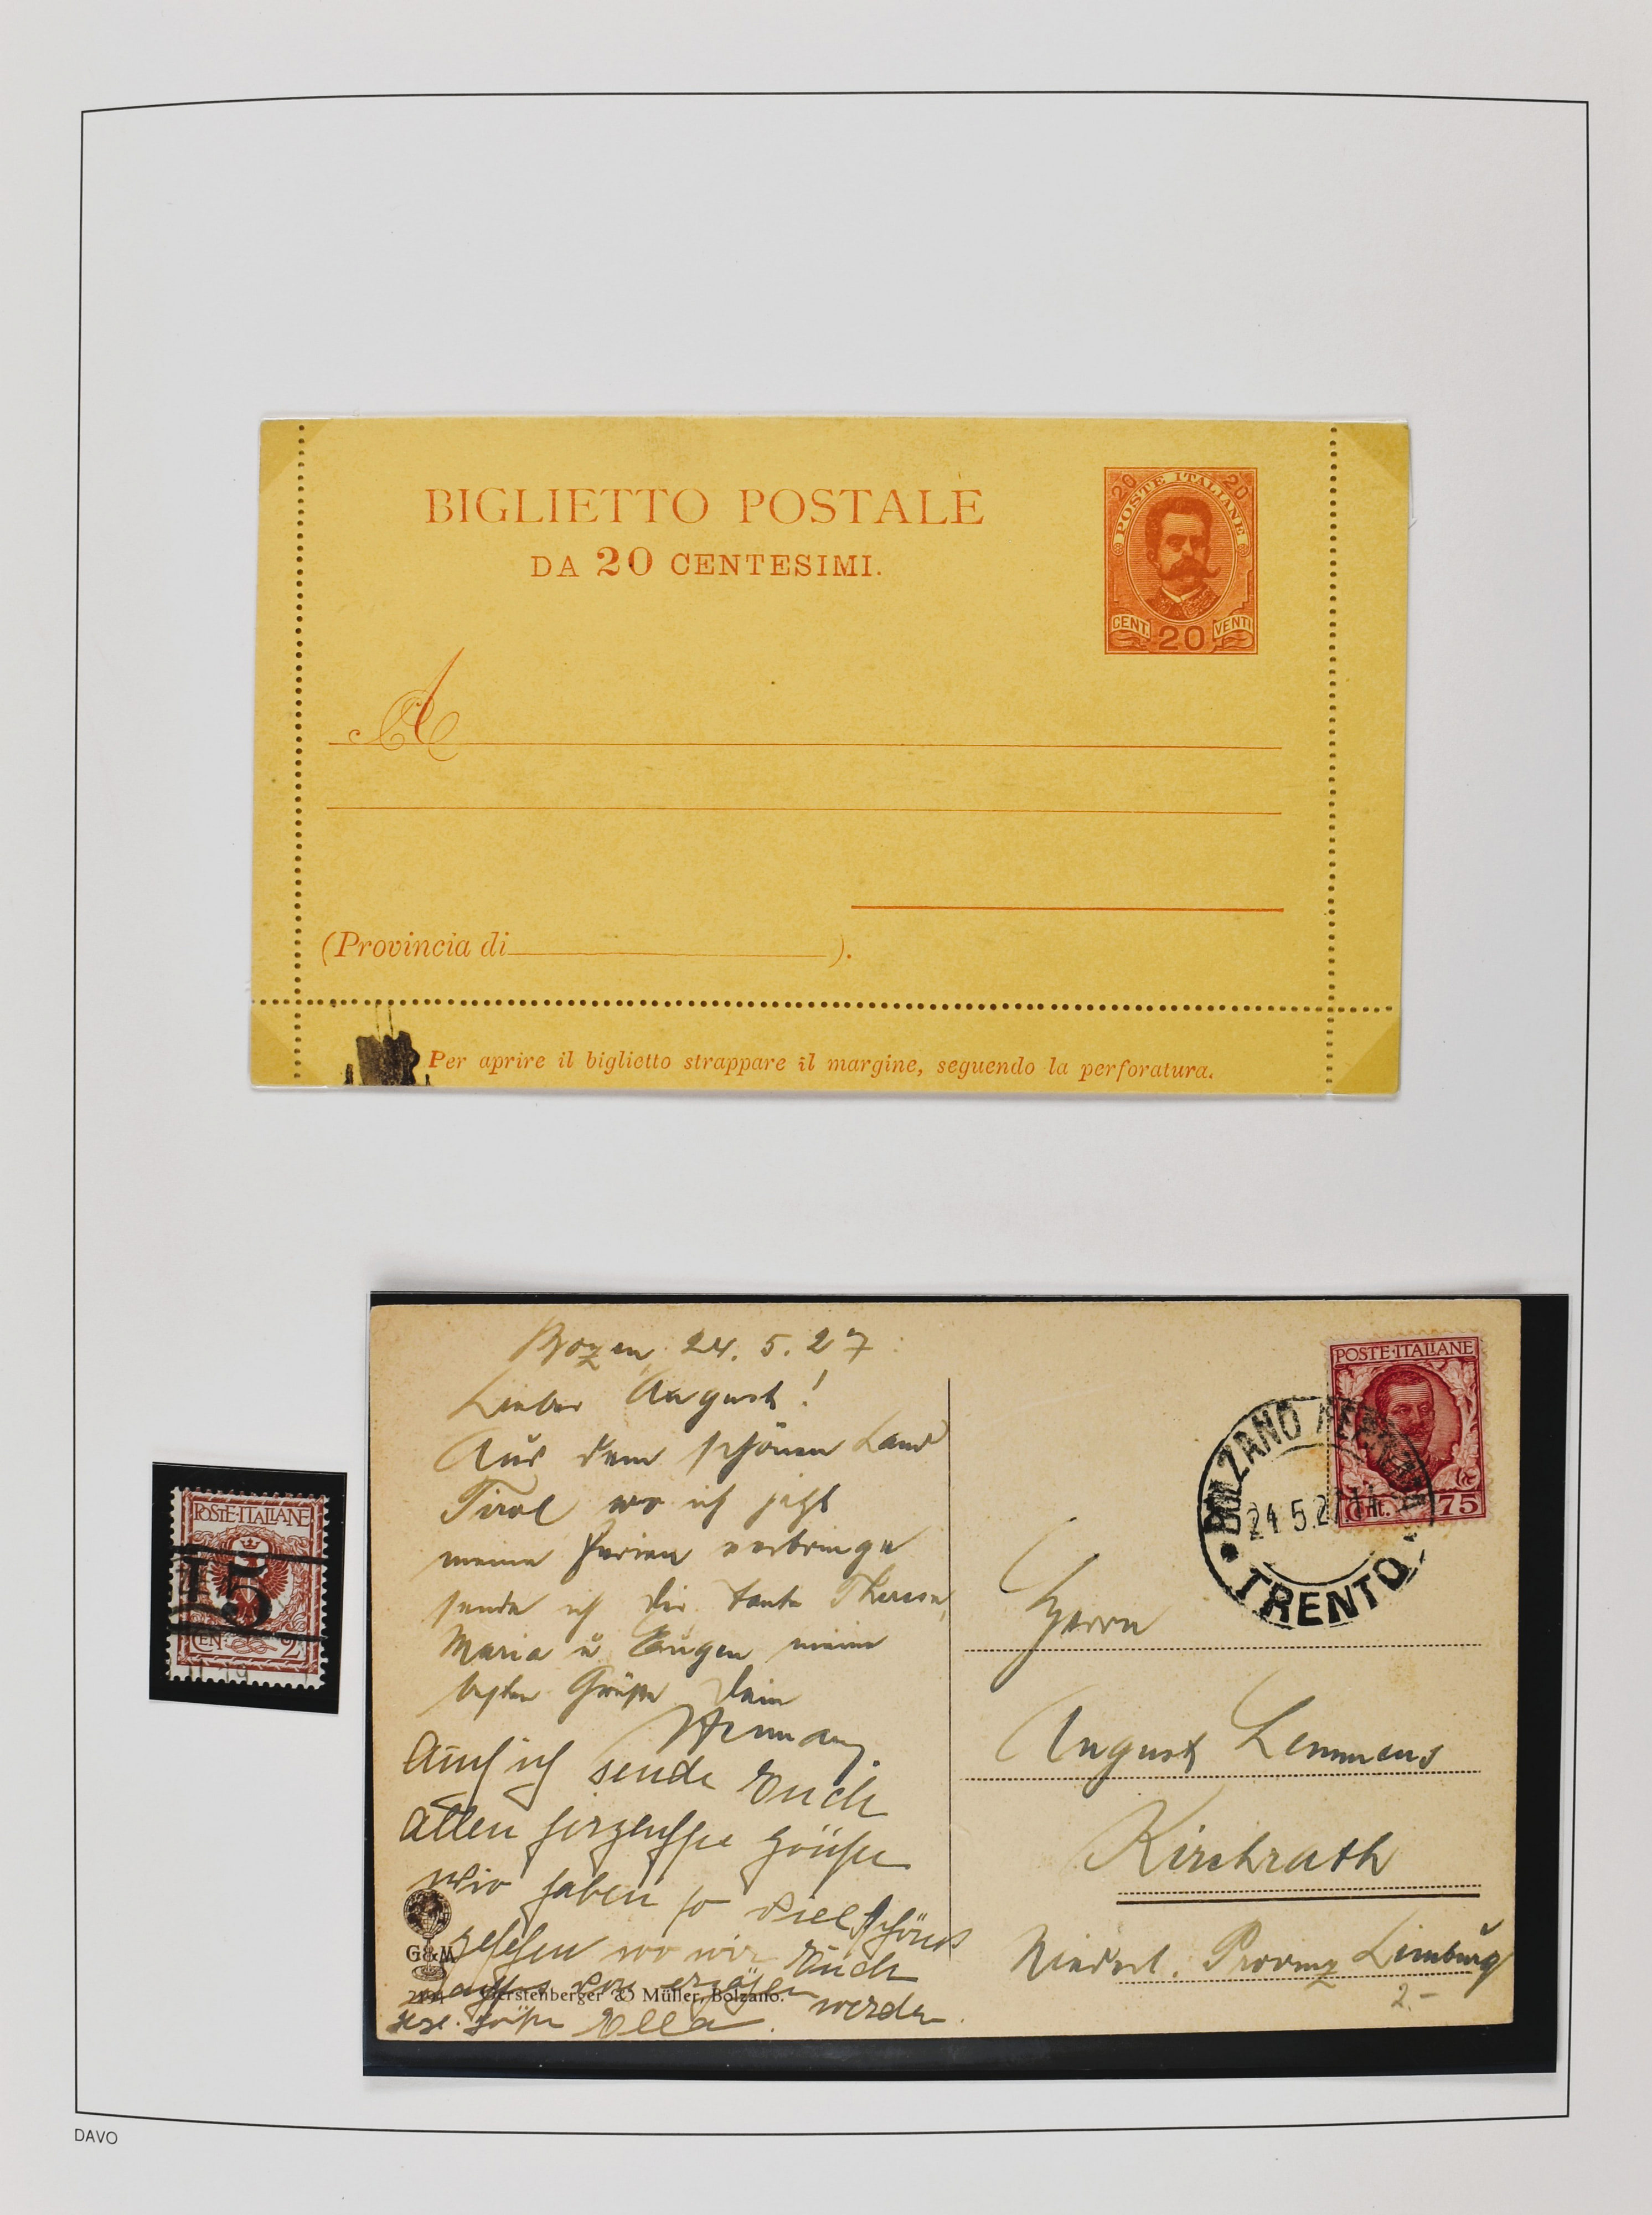 BIGLIETTO POSTALE
DA 20 CENTESIMI.
20 20
POSTE ITALIANE
CENT. 20 VENTI
A
(Provincia di ).
Per aprire il biglietto strappare il margine, seguendo la perforatura.
POSTE·ITALIANE
15
CEN. 2
Bozen, 24. 5. 27
Lieber August!
Aus dem schönen Land
Tirol wo ich jetzt
meine Ferien verbringe
sende ich dir Tante Therese,
Maria u. Eugen meine
besten Grüße Dein
Hermann.
Auch ich sende Euch
allen herzensfrohe Grüße
Wir haben so viel schönes
gesehen wo wir Euch
erzählen werden.
Grüße Ella.
G&M
Gerstenberger & Müller, Bolzano.
POSTE·ITALIANE
Cent. 75
BOLZANO
24.5.27.
TRENTO
Herrn
August Lemmens
Kirchrath
Niederl. Provinz Limburg
2.-
DAVO